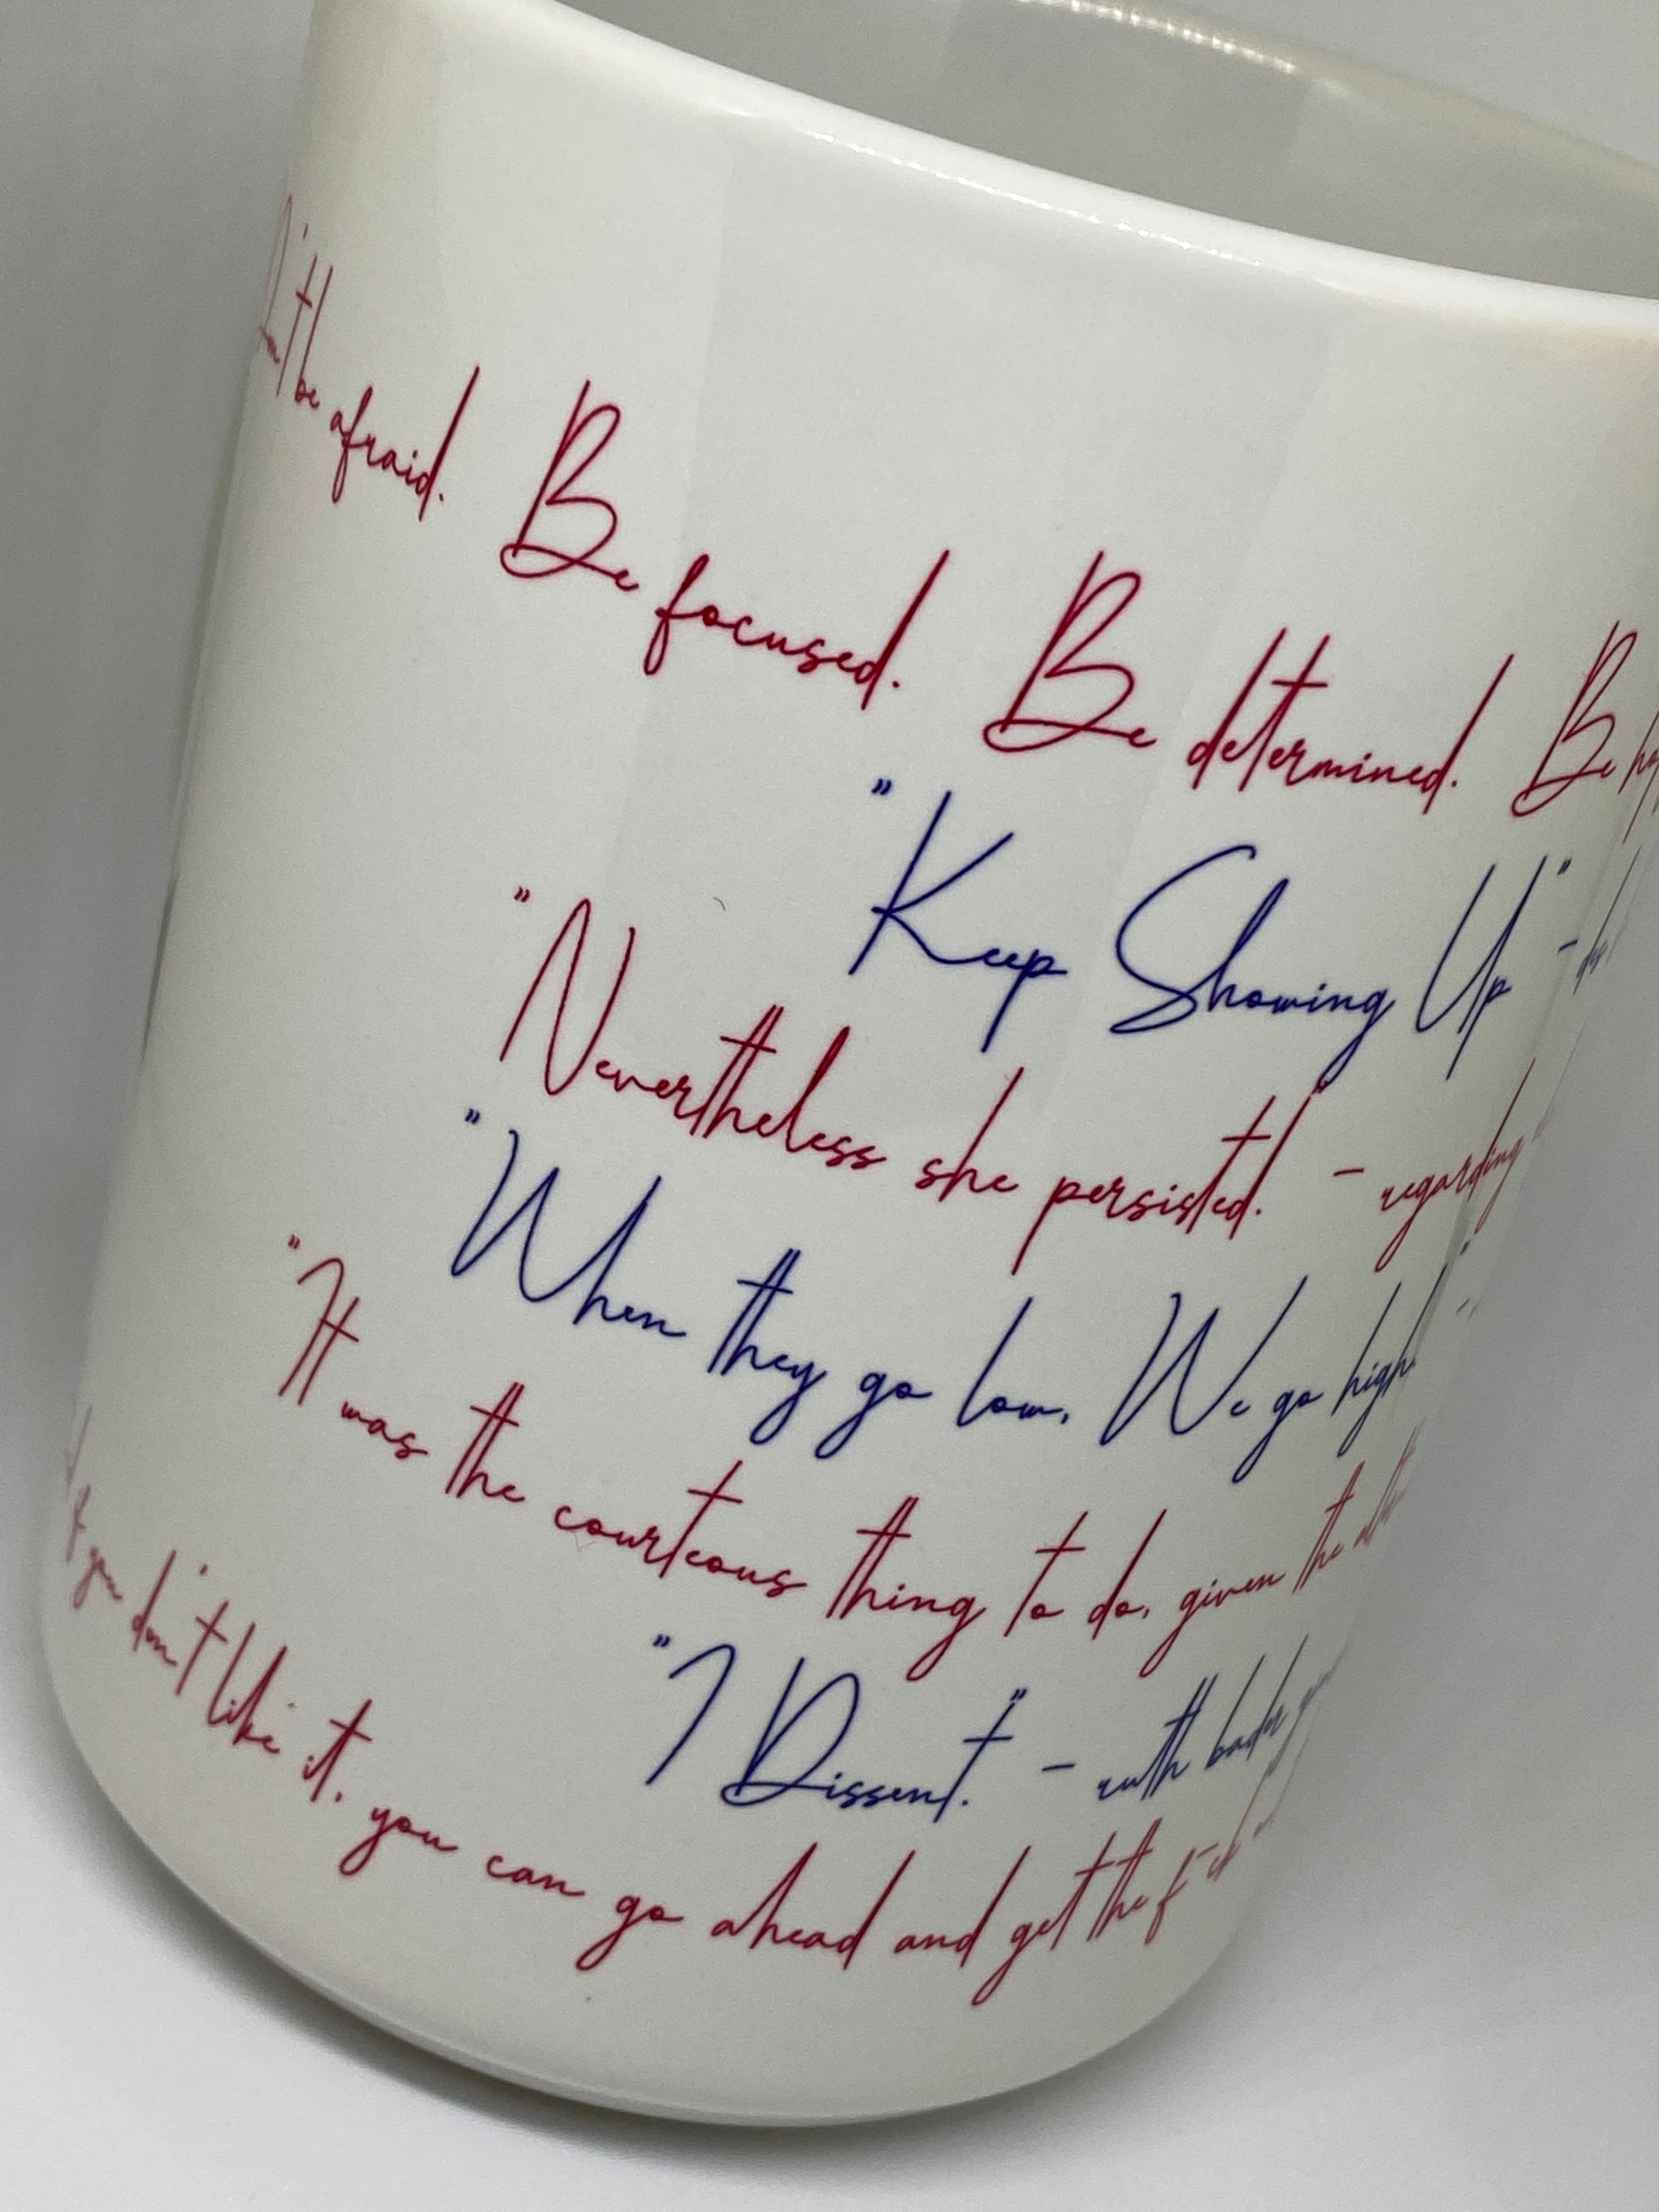 Don't be afraid. Be focused. Be determined. Be
"Keep Showing Up" -
"Nevertheless she persisted." - regarding
"When they go low, We go high." -
"It was the courteous thing to do, given the
"I Dissent." - ruth bader
if you don't like it, you can go ahead and get the f-ck